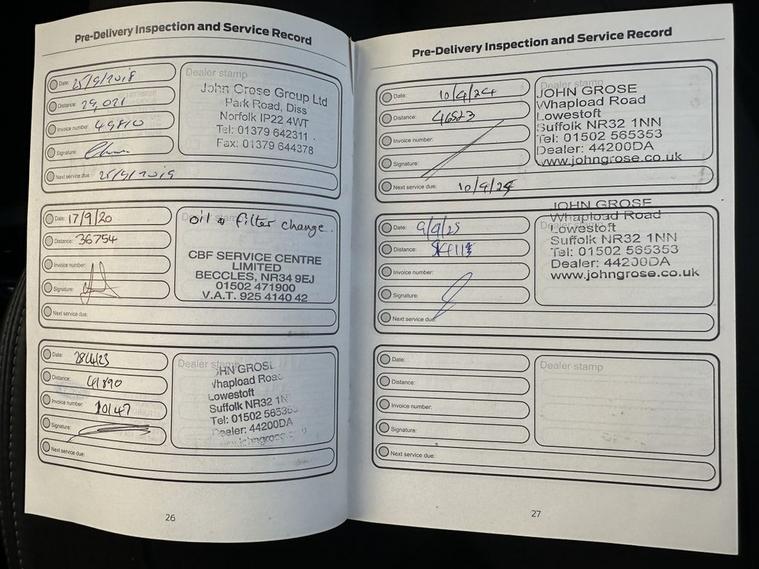 Pre-Delivery Inspection and Service Record
Date: 25/9/2018
Distance: 29,021
Invoice number: 49810
Signature:
Next service due: 25/9/2019
Dealer stamp
John Grose Group Ltd
Park Road, Diss
Norfolk IP22 4WT
Tel: 01379 642311
Fax: 01379 644378
Date: 17/9/20
Distance: 36754
Invoice number:
Signature:
Next service due:
oil & filter change.
CBF SERVICE CENTRE
LIMITED
BECCLES, NR34 9EJ
01502 471900
V.A.T. 925 4140 42
Date: 28/4/23
Distance: 41890
Invoice number: 10147
Signature:
Next service due:
Dealer stamp
HN GROSE
Whapload Road
Lowestoft
Suffolk NR32 1N
Tel: 01502 565353
Dealer: 44200DA
26
Pre-Delivery Inspection and Service Record
Date: 10/4/24
Distance: 46523
Invoice number:
Signature:
Next service due:
Dealer stamp
JOHN GROSE
Whapload Road
Lowestoft
Suffolk NR32 1NN
Tel: 01502 565353
Dealer: 44200DA
www.johngrose.co.uk
Date: 9/9/25
Distance:
Invoice number:
Signature:
Next service due:
JOHN GROSE
Whapload Road
Lowestoft
Suffolk NR32 1NN
Tel: 01502 565353
Dealer: 44200DA
www.johngrose.co.uk
Date:
Distance:
Invoice number:
Signature:
Next service due:
Dealer stamp
27